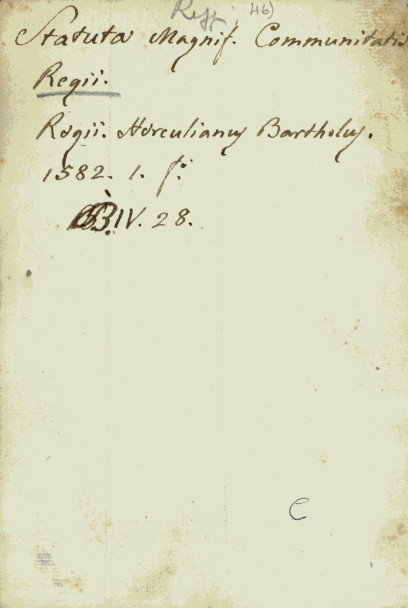 Regg. 46)
Statuta Magnif. Communitatis
Regii.
Regii. Herculianus Bartholus.
1582. 1. f.
BB. IV. 28.
C